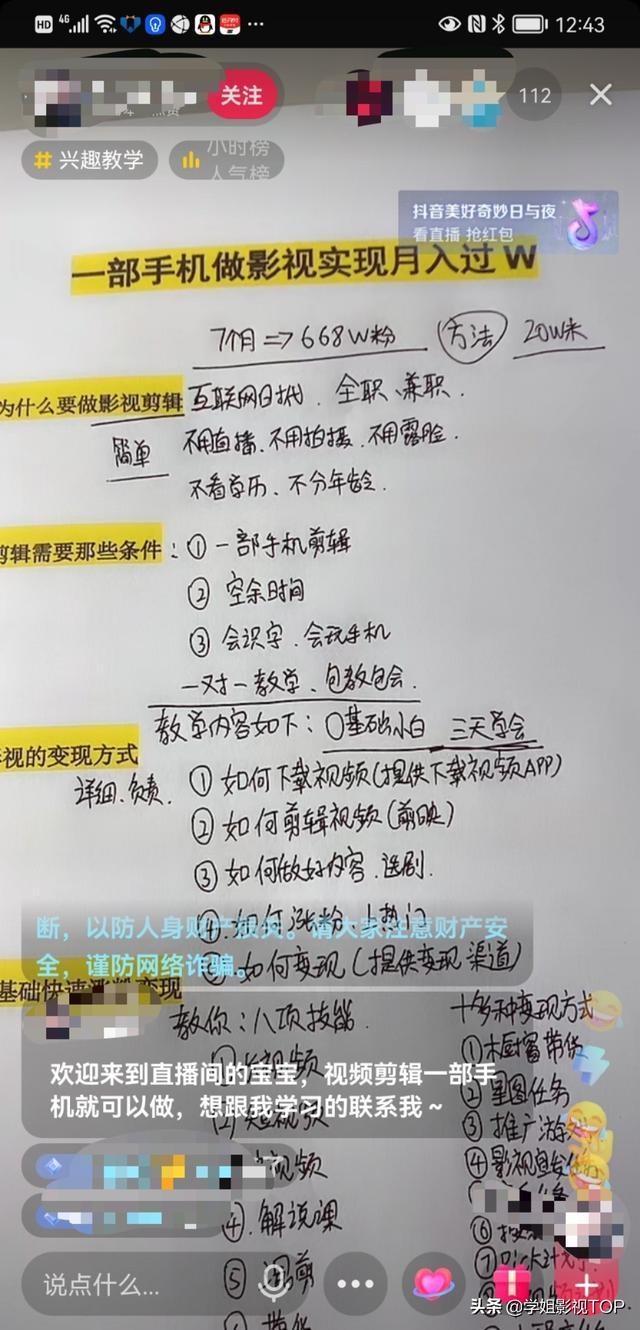 HD 4G 12:43
关注
112
# 兴趣教学
小时榜
人气榜
抖音美好奇妙日与夜
看直播 抢红包
一部手机做影视实现月入过 W
7个月 => 668W粉 方法 20W米
为什么要做影视剪辑 互联网时代、全职、兼职.
简单 不用直播、不用拍摄、不用露脸.
不看学历、不分年龄.
剪辑需要那些条件: ①一部手机剪辑
② 空余时间
③ 会识字、会玩手机
一对一教学、包教包会.
教学内容如下: 0基础小白 三天学会
视的变现方式
详细、负责.
① 如何下载视频(提供下载视频APP)
② 如何剪辑视频(剪映)
③ 如何做好内容、选剧.
④ 如何涨粉、上热门
如何变现(提供变现渠道)
请大家注意财产安
全，谨防网络诈骗。
基础快速涨粉变现
教你: 八项技能. 十多种变现方式
①橱窗带货
欢迎来到直播间的宝宝，视频剪辑一部手
机就可以做，想跟我学习的联系我～
②星图任务
③推广游
④影视
④. 解说课
⑤ 混剪
⑥
⑦
说点什么...
头条 @学姐影视TOP